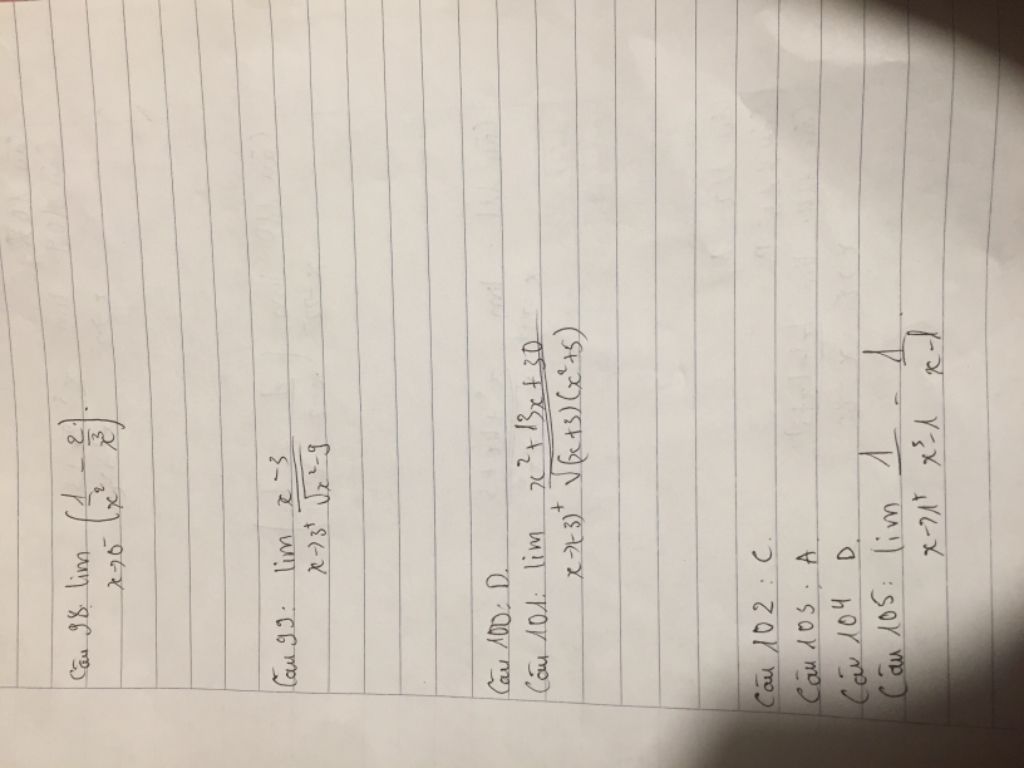 Câu 98: lim (1/x² - 2/x³).
x→0⁻
Câu 99: lim x-3/√x²-9
x→3⁺
Câu 100: D.
Câu 101: lim x²+13x+30/√(x+3)(x²+5)
x→(-3)⁺
Câu 102: C.
Câu 103: A
Câu 104 D.
Câu 105: lim 1/x³-1 - 1/x-1.
x→1⁺